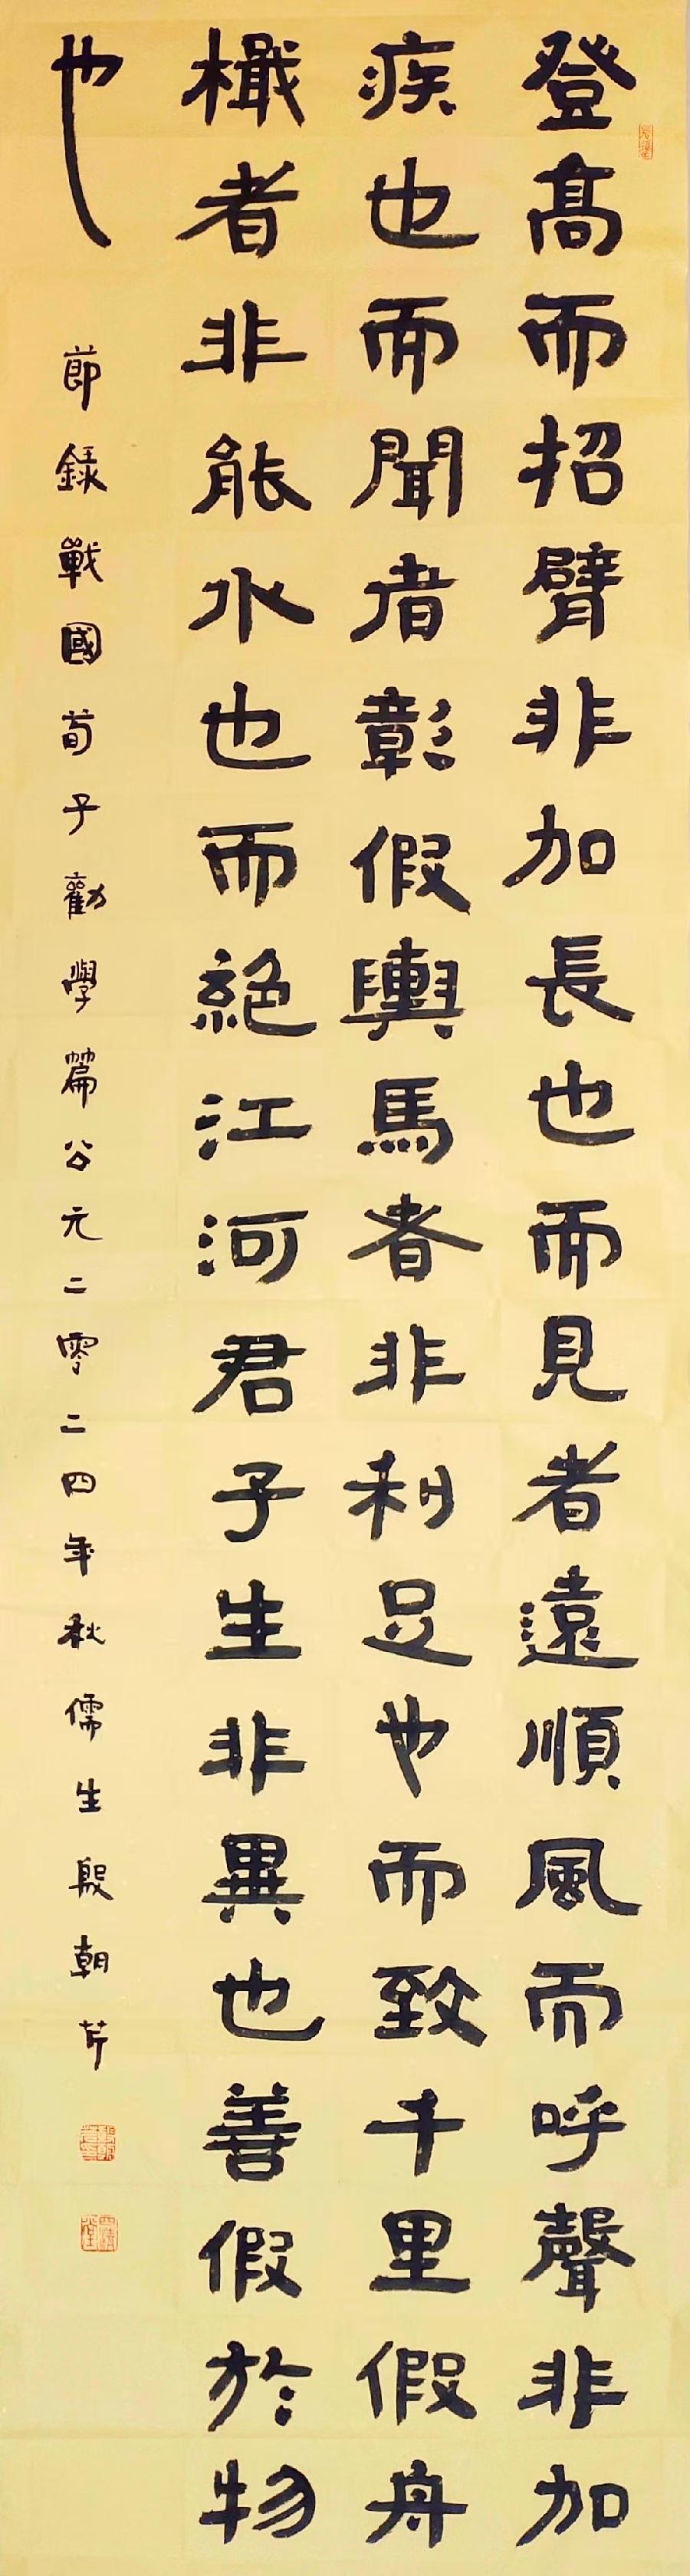 登髙而招臂非加長也而見者遠順風而呼聲非加
疾也而聞者彰假輿馬者非利足也而致千里假舟
檝者非能水也而絶江河君子生非異也善假於物
也
節錄戰國荀子勸學篇公元二零二四年秋儒生殷朝芹